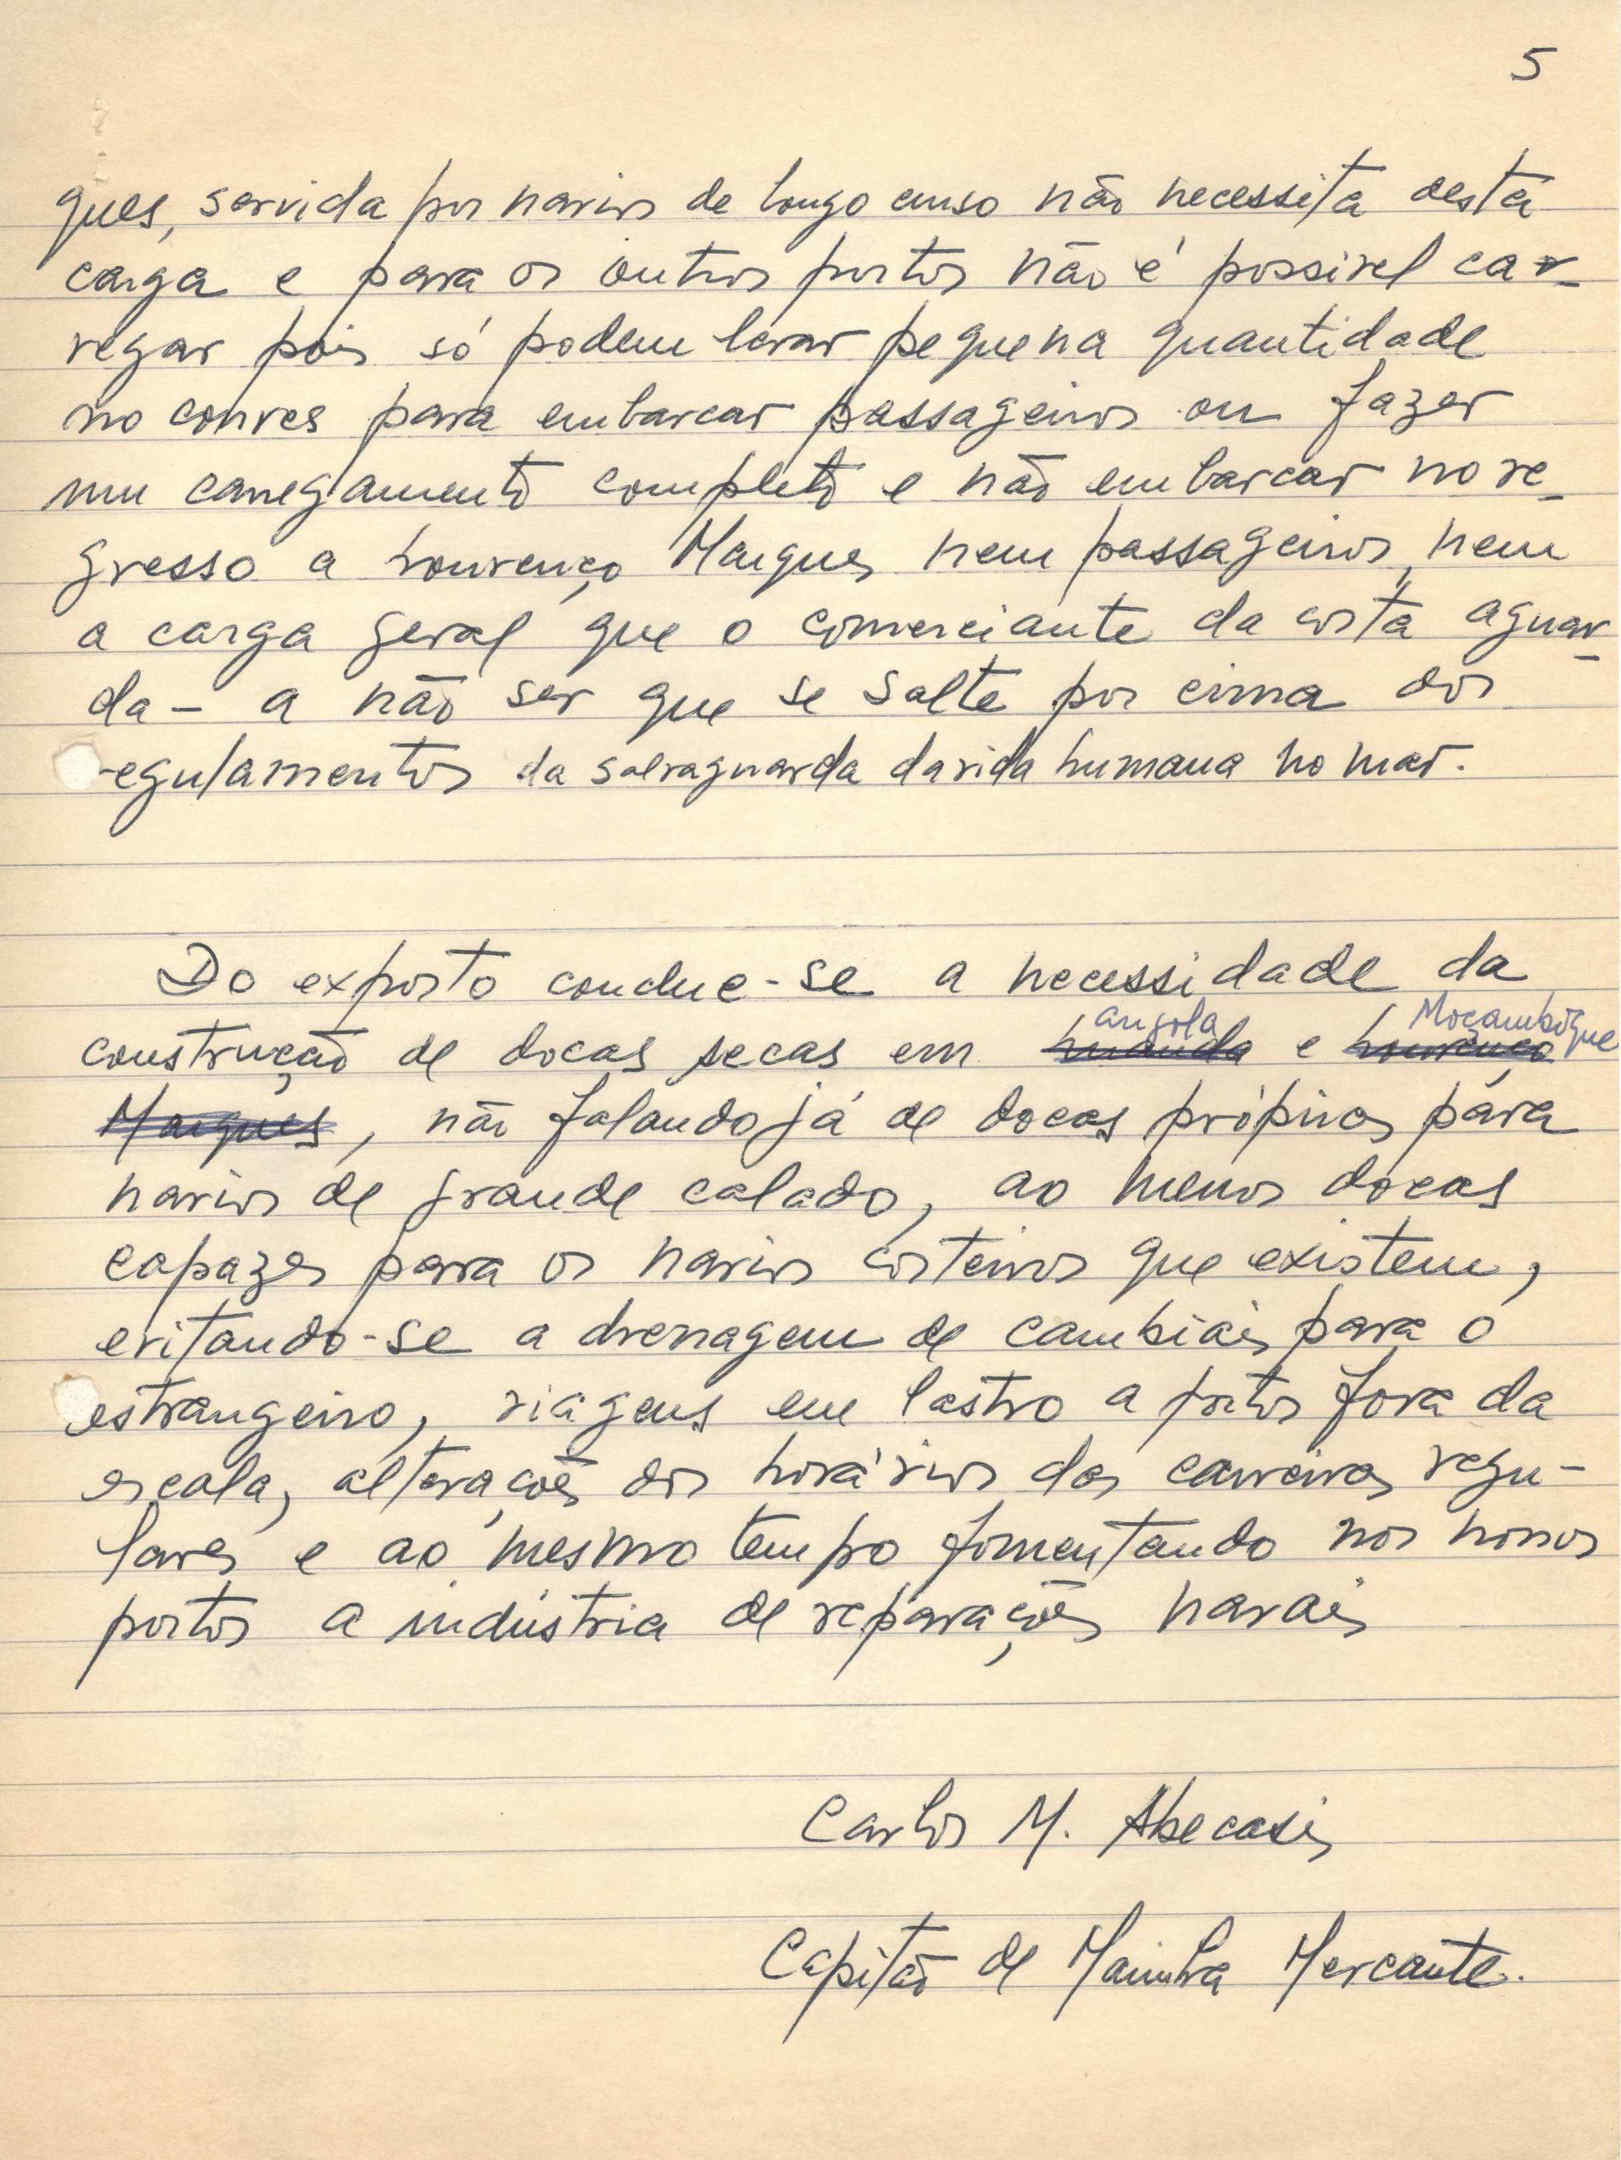 5
ques, servida por navios de longo curso não necessita desta
carga e para os outros portos não é possivel car-
regar pois só podem levar pequena quantidade
no convés para embarcar passageiros ou fazer
um carregamento completo e não embarcar no re-
gresso a Lourenço Marques nem passageiros, nem
a carga geral que o comerciante da costa aguar-
da - a não ser que se salte por cima dos
regulamentos da salvaguarda da vida humana no mar.
Do exposto conclue-se a necessidade da
angola Moçambique
construção de docas secas em Luanda e Lourenço
Marques, não falando já de docas próprias para
navios de grande calado, ao menos docas
capazes para os navios costeiros que existem,
evitando-se a drenagem de cambiais para o
estrangeiro, viagens em lastro a portos fora da
escala, alterações dos horários das carreiras regu-
lares e ao mesmo tempo fomentando nos nossos
portos a indústria de reparações navais
Carlos M. Abecasis
Capitão de Marinha Mercante.